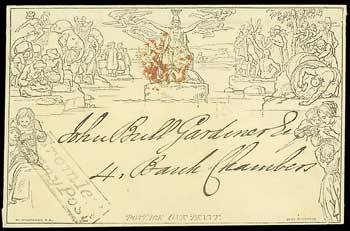 John Bull Gardiner Esq
4, Bank Chambers
Post
POSTAGE ONE PENNY.
W. MULREADY, R.A.